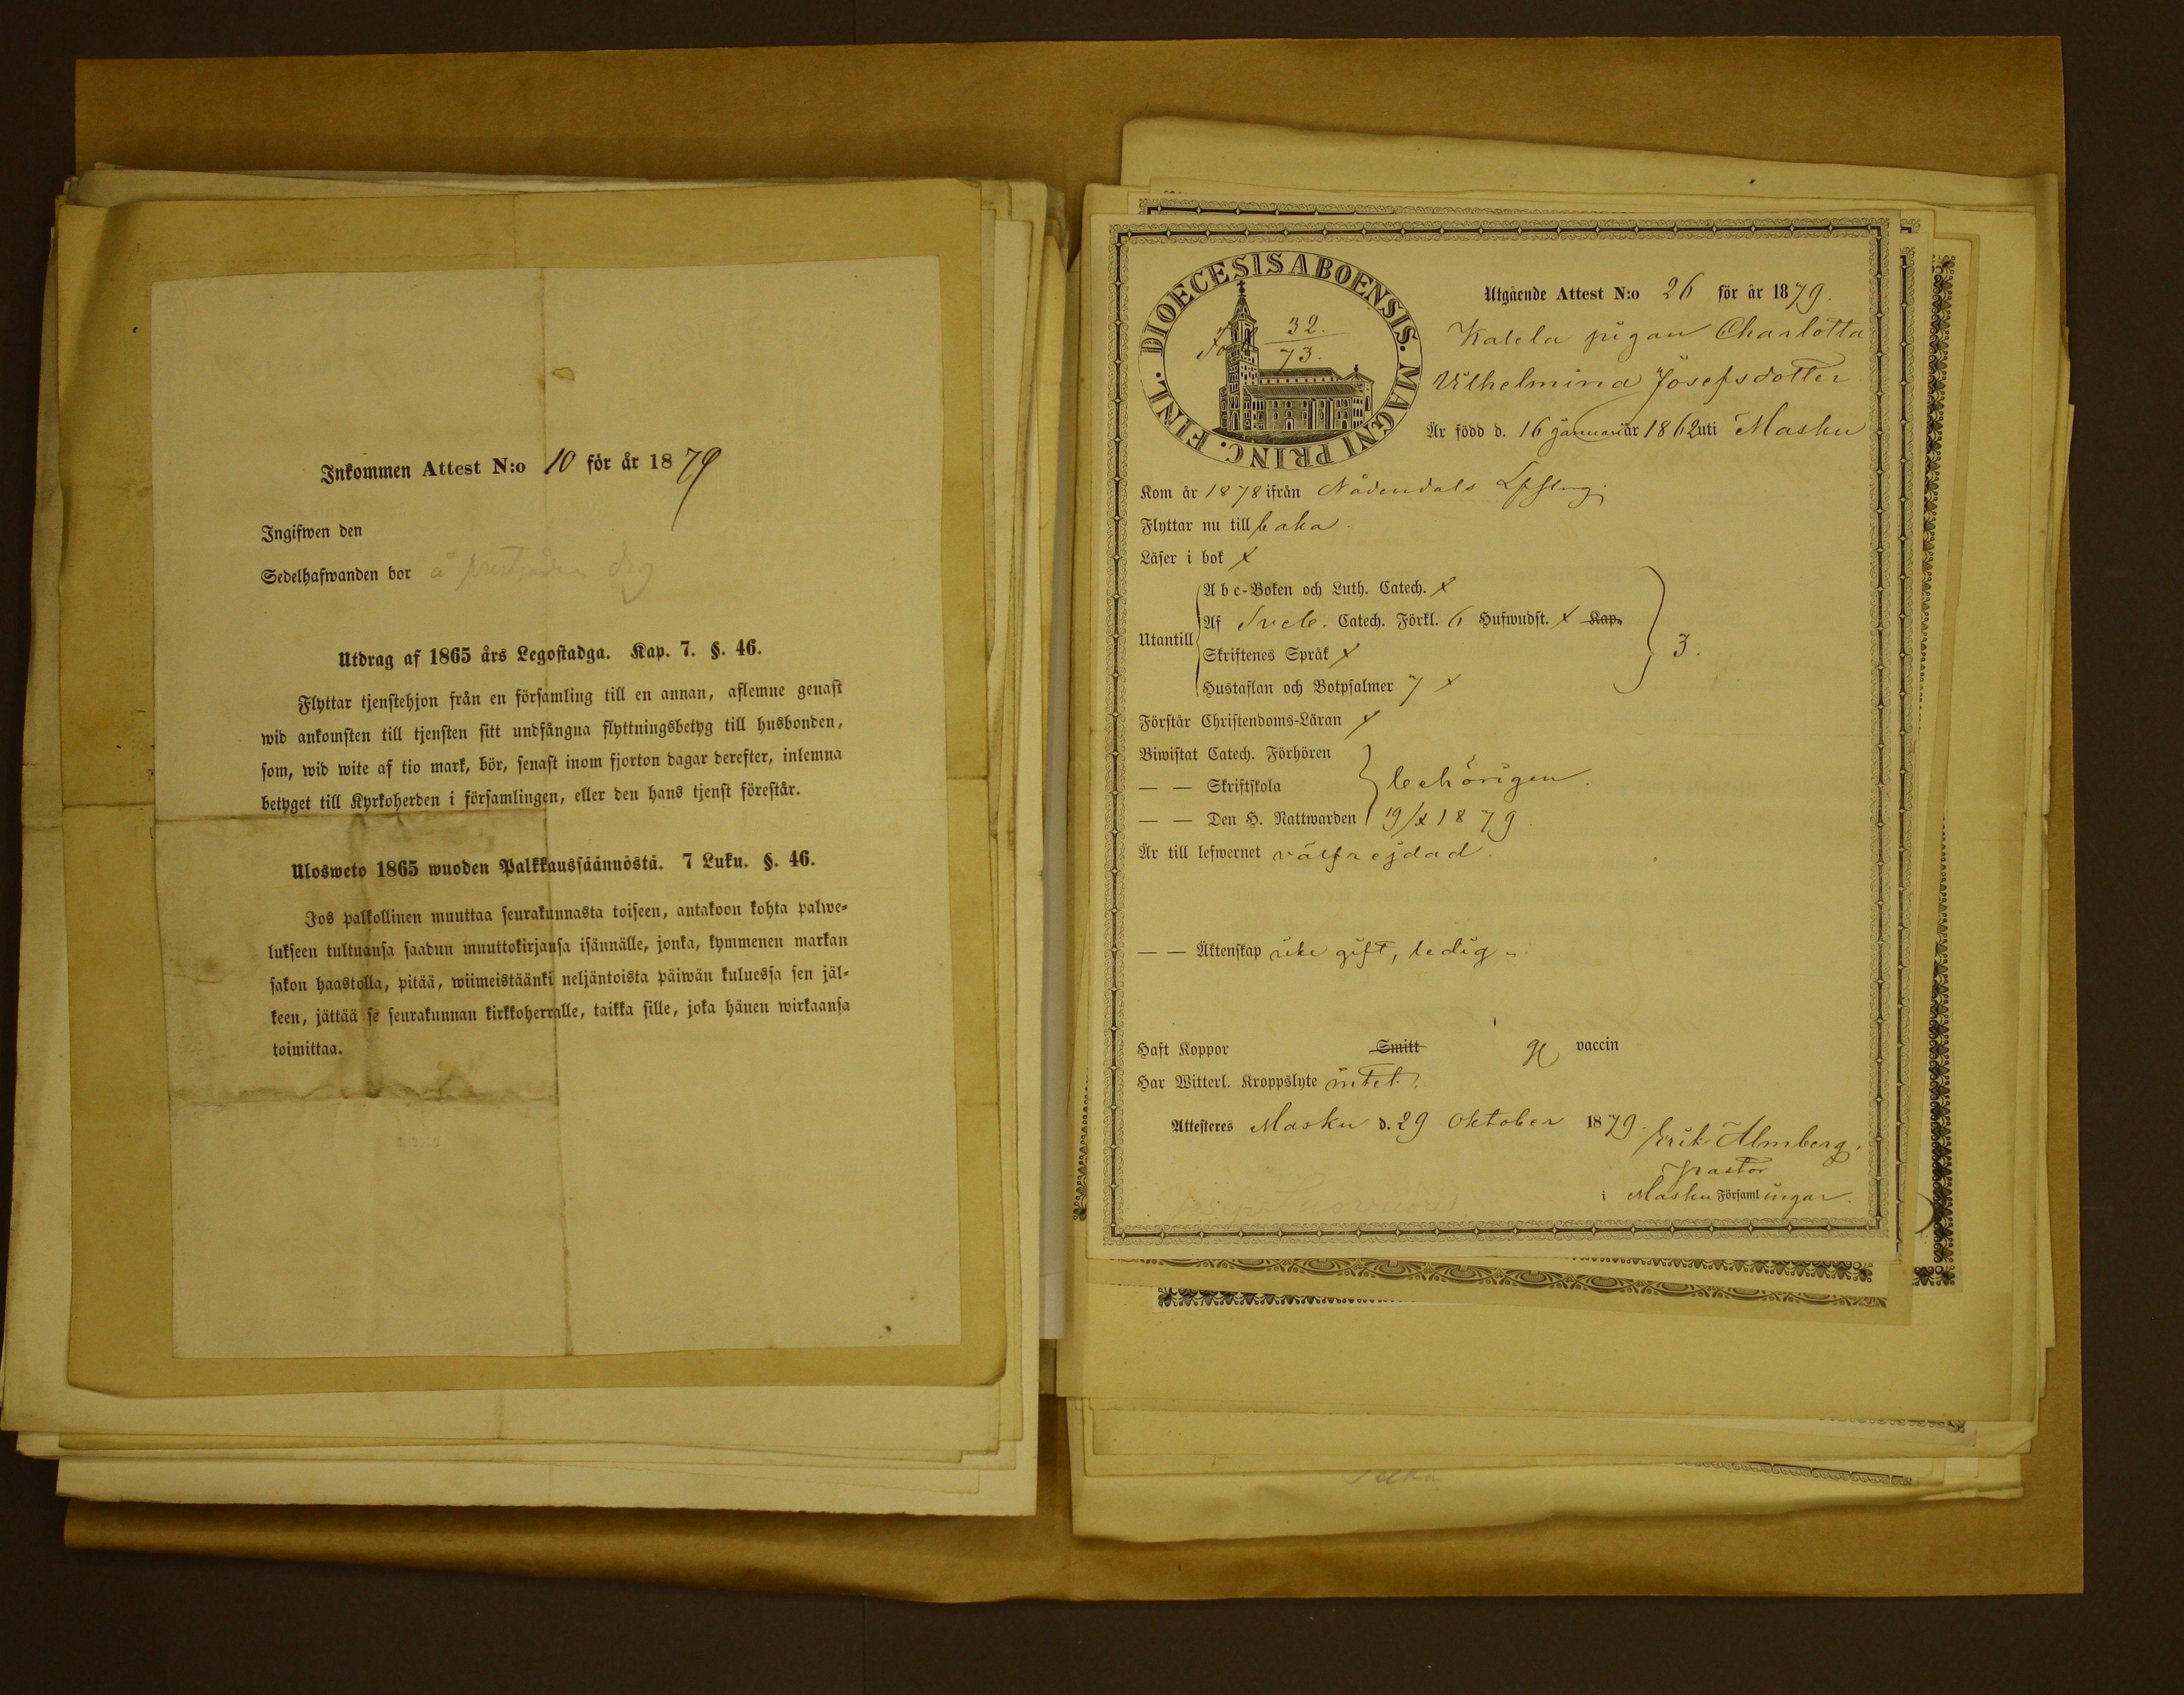 Inkommen Attest N:o 10 för år 1879
Ingifwen den
Sedelhafwanden bor å
Utdrag af 1865 års Legostadga. Kap. 7. §. 46.
Flyttar tjenstehjon från en församling till en annan, aflemne genast
wid ankomsten till tjensten sitt undfångna flyttningsbetyg till husbonden,
som, wid wite af tio mark, bör, senast inom fjorton dagar derefter, inlemna
betyget till Kyrkoherden i församlingen, eller den hans tjenst förestår.
Ulosweto 1865 wuoden Palkkaussäännöstä. 7 Luku. §. 46.
Jos palkollinen muuttaa seurakunnasta toiseen, antakoon kohta palwe-
lukseen tultuansa saadun muuttokirjansa isännälle, jonka, kymmenen markan
sakon haastolla, pitää, wiimeistäänki neljäntoista päiwän kuluessa sen jäl-
keen, jättää se seurakunnan kirkkoherralle, taikka sille, joka hänen wirkaansa
toimittaa.
DIOECESIS ABOENSIS. MAGNI PRINC. FINL.
32.
73.
Utgående Attest N:o 26 för år 1879.
Katela pigan Charlotta
Vilhelmina Josefsdotter
Är född d. 16 januari år 1862 uti Masku
Kom år 1878 ifrån Nådendals
Flyttar nu till baka.
Läser i bok x
Utantill
A b c-Boken och Luth. Catech. x
Af Sveb. Catech. Förkl. 6 Hufwudst. x Kap.
Skriftenes Språk x
Hustaflan och Botpsalmer 7 x
3.
Förstår Christendoms-Läran x
Biwistat Catech. Förhören
— — Skriftskola
behörigen.
— — Den H. Nattwarden 19/x 1879.
Är till lefwernet välfrejdad.
— — Äktenskap icke gift, ledig
Haft Koppor Smitt vaccin
Har Witterl. Kroppslyte intet.
Attesteres Masku d. 29 Oktober 1879.
Erik Almberg.
Pastor
i Masku Församlingar.